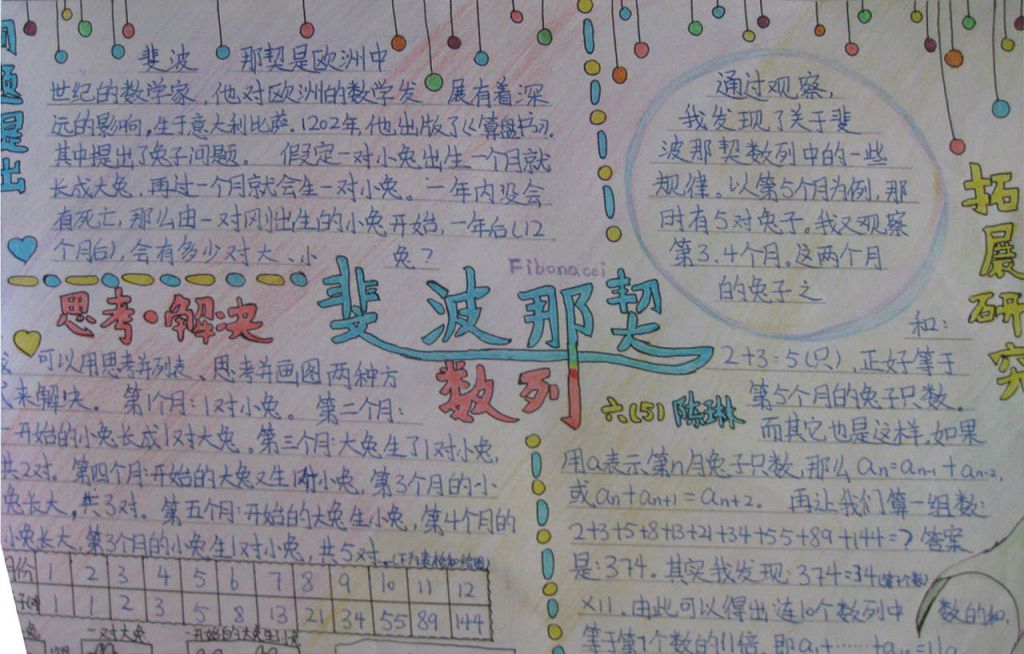 问题提出
斐波 那契是欧洲中
世纪的数学家,他对欧洲的数学发 展有着深
远的影响,生于意大利比萨.1202年,他出版了《算盘书》.
其中提出了兔子问题。 假定一对小兔出生一个月就
长成大兔,再过一个月就会生一对小兔。一年内没会
有死亡,那么由一对刚出生的小兔开始,一年后(12
个月后),会有多少对大、小 兔?
思考·解决
可以用思考并列表、思考并画图两种方
来解决。 第1个月:1对小兔。 第二个月:
一开始的小兔长成1对大兔。第三个月:大兔生了1对小兔,
共2对。第四个月:开始的大兔又生1对小兔,第3个月的小
兔长大,共3对。第五个月:开始的大兔生小兔,第4个月的
小兔长大,第3个月的小兔生1对小兔,共5对.(下为表格和绘图)
月份 1 2 3 4 5 6 7 8 9 10 11 12
1 1 2 3 5 8 13 21 34 55 89 144
一对大兔
开始的大兔生1对
Fibonacci
斐波那契
数列
六(5) 陈琳
通过观察,
我发现了关于斐
波那契数列中的一些
规律。以第5个月为例,那
时有5对兔子。我又观察
第3.4个月。这两个月
的兔子之
和:
2+3=5(只),正好等于
第5个月的兔子只数。
而其它也是这样,如果
用a表示第n月兔子只数,那么an=an-1+an-2,
或an+an+1=an+2。 再让我们算一组数:
2+3+5+8+13+21+34+55+89+144=?答案
是:374。其实我发现:374=34(第7个数)
×11.由此可以得出连10个数列中 数的和,
等于第7个数的11倍.即a1+……+a10=11a
拓展研究